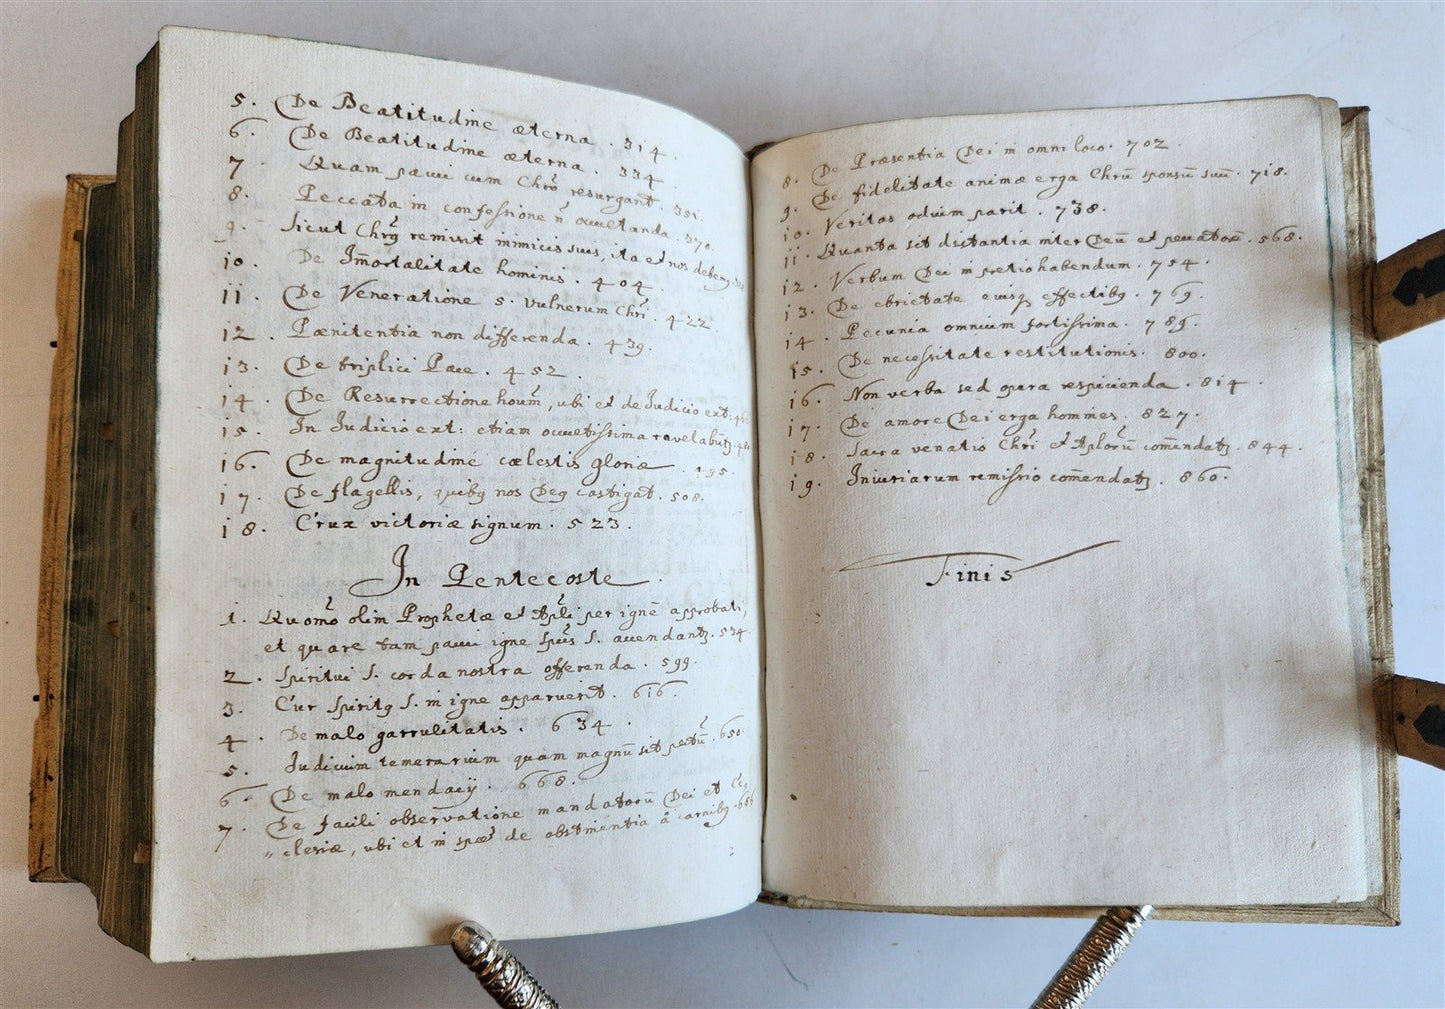 5. De Beatitudine æterna. 314.
6. De Beatitudine æterna. 334.
7. Quam pauci cum Chrō resurgant. 351.
8. Peccata in confessione n̄ occultanda. 370.
9. Sicut Chrȳ remisit inimicis suis, ita et nos debemȳ.
10. De Im̄ortalitate hominis. 404.
11. De Veneratione 5. vulnerum Chrī. 422.
12. Pænitentia non differenda. 439.
13. De triplici Pace. 452.
14. De Resurrectione houm̄, ubi et de Judicio ext:
15. In Judicio ext: etiam occultissima
16. De magnitudine cælestis gloriæ. 495.
17. De flagellis, quibȝ nos Deȝ castigat. 508.
18. Crux victoriæ signum. 523.
In Pentecoste.
1. Quomō olim Prophetæ et Aplī per ignē approbati,
et quare tam pauci igne Spūs S. accendantȝ. 534.
2. Spiritui S. corda nostra offerenda. 599.
3. Cur Spiritȝ S. in igne apparuerit. 616.
4. De malo garrulitatis. 634.
5. Judicium temerarium quam magnū sit pctū. 650.
6. De malo mendacij. 668.
7. De facili observatione mandatorū Dei et Ec,
„clesiæ, ubi et in spæ de abstinentia à carnibȝ. 686
8. De Præsentia Dei in omni loco. 702.
9. De fidelitate animæ erga Chrū sponsū suū. 718.
10. Veritas odium parit. 738.
11. Quanta sit distantia inter Deū et peccatorū. 568.
12. Verbum Dei in pretio habendum. 754.
13. De ebrietate eiusq̧ effectibȝ. 769.
14. Pecunia omnium fortissima. 785.
15. De necessitate restitutionis. 800.
16. Non verba sed opera respicienda. 814.
17. De amore Dei erga homines. 827.
18. Sacra venatio Chrī et Aplorū com̄endatȝ. 844.
19. Iniuriarum remissio com̄endatȝ. 860.
Finis